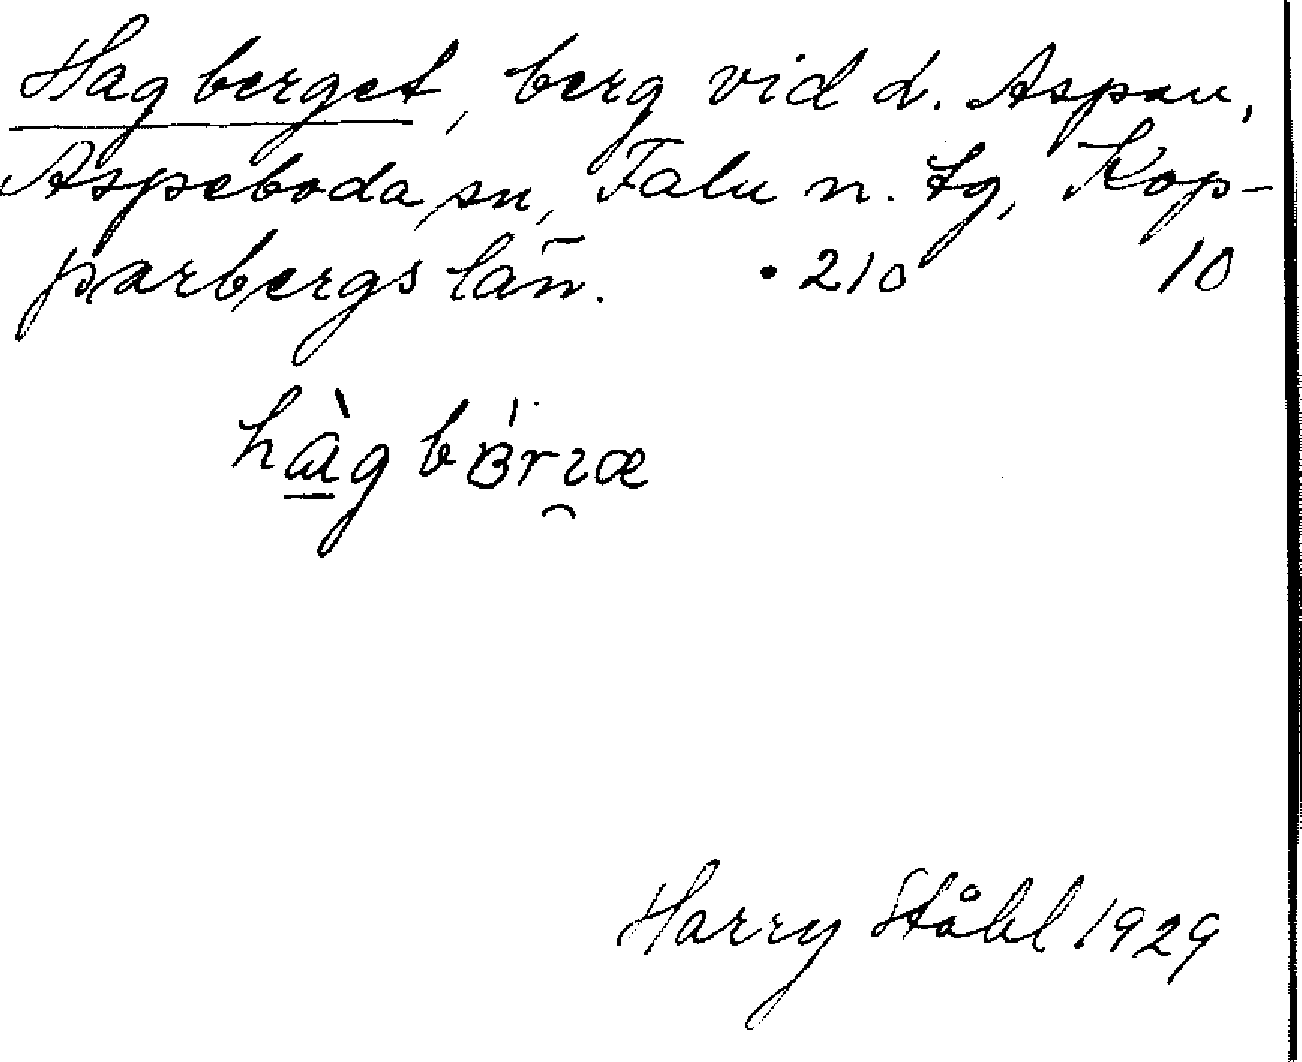 Hagberget, berg vid d. Aspan,
Aspeboda sn, Falu n. tg, Kop-
parbergs län. • 210 10
Harry Ståhl 1929